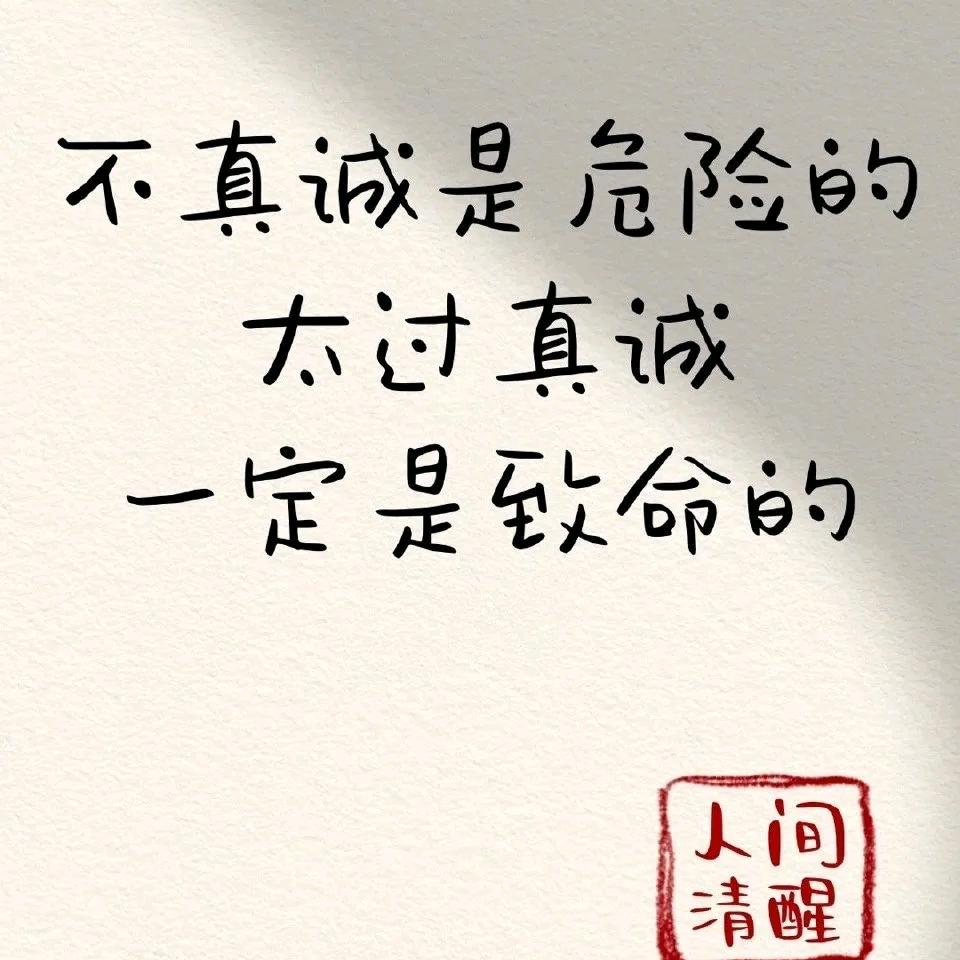 不真诚是危险的
太过真诚
一定是致命的
人间
清醒